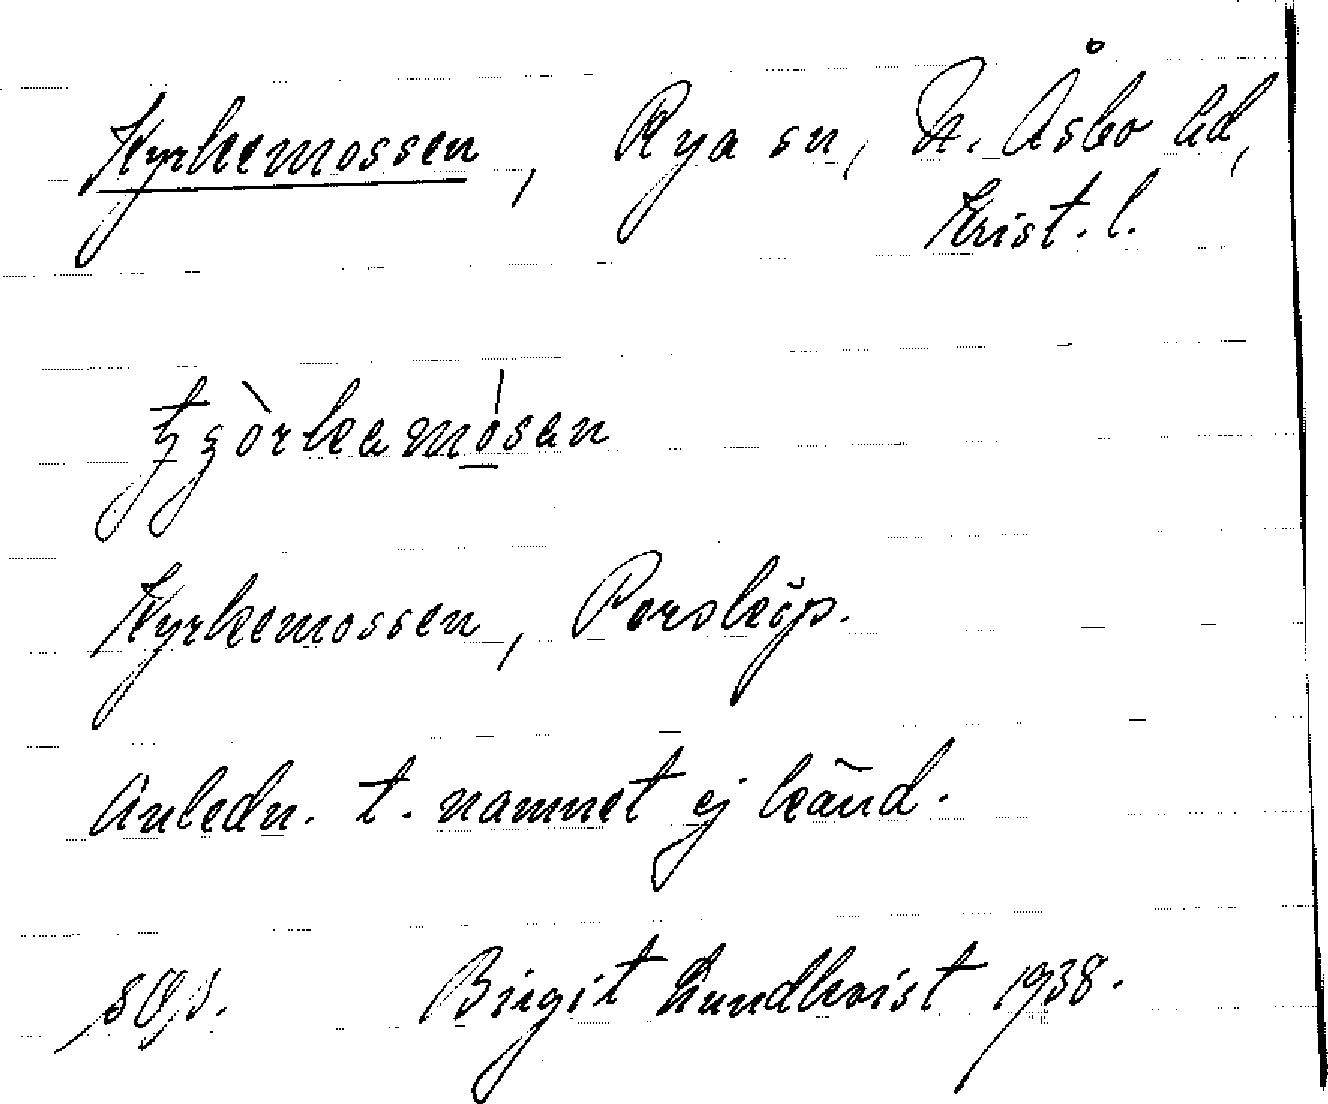 Kyrkemossen, Rya sn, N. Åsbo hd,
Krist. l.
Kyrkemossen, Porsköp.
Anledn. t. namnet ej känd.
Birgit Lundkvist 1938.